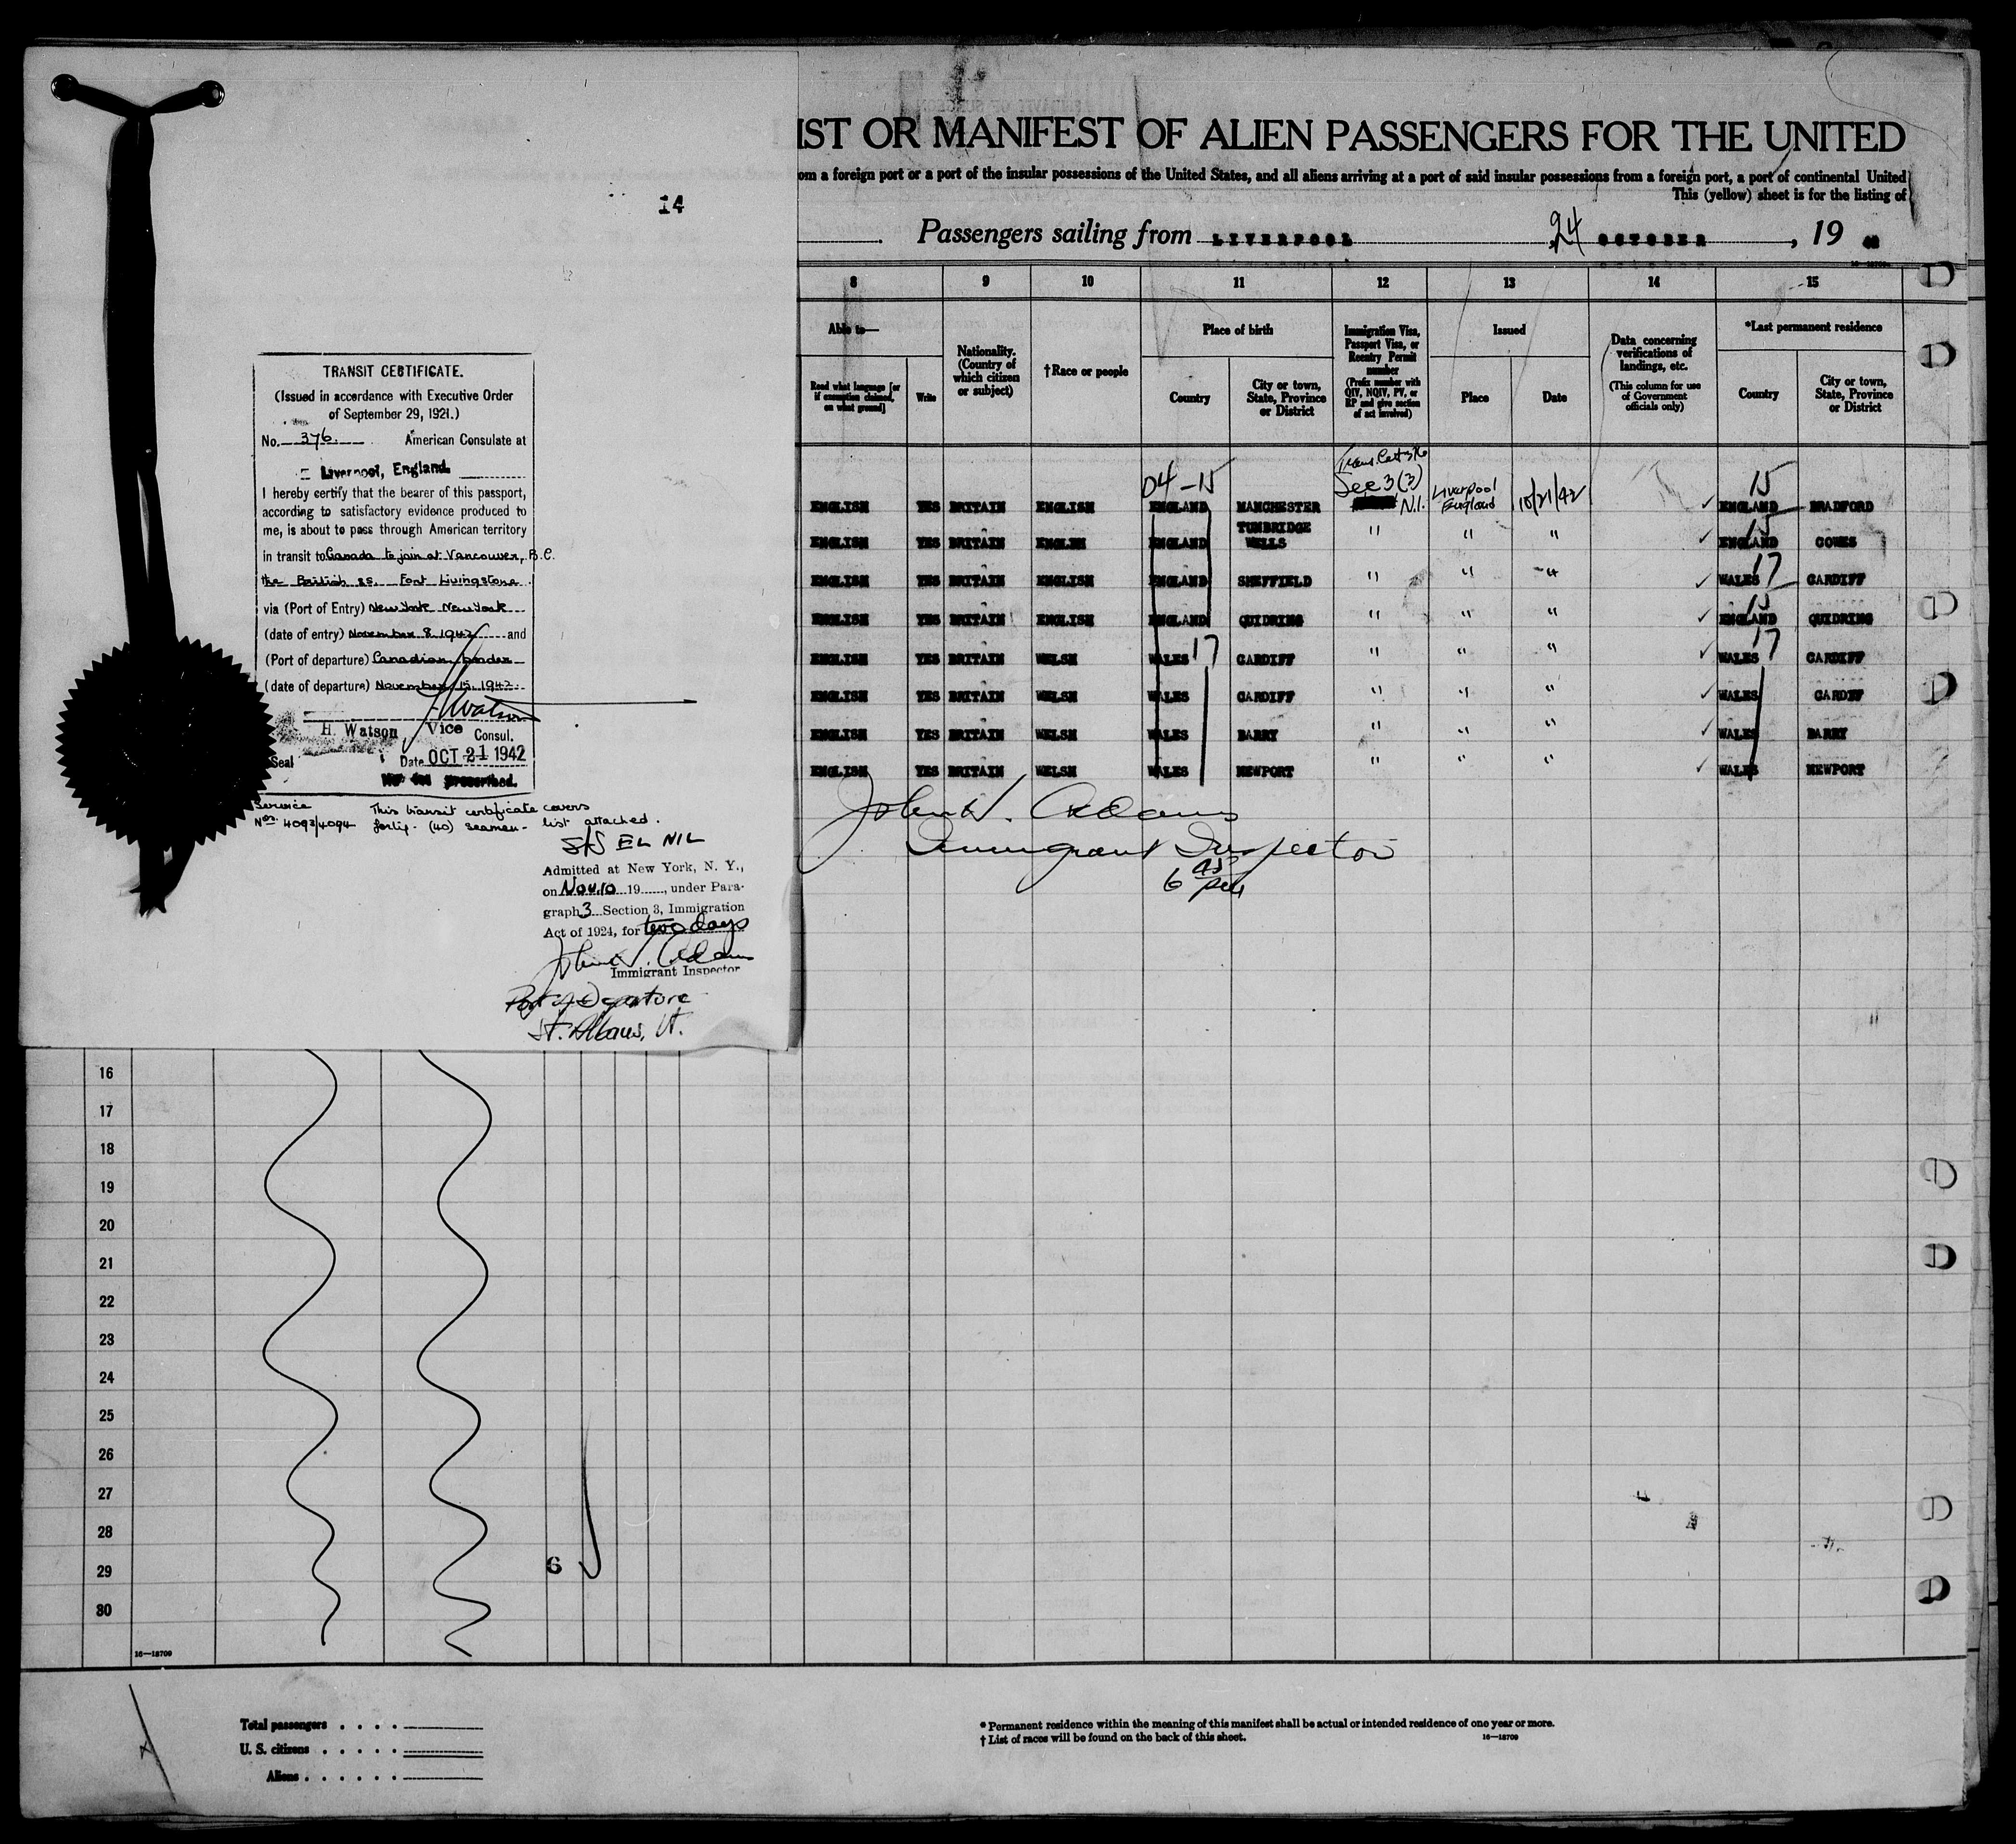 14
TRANSIT CERTIFICATE.
(Issued in accordance with Executive Order
of September 29, 1921.)
No. 376. American Consulate at
Liverpool, England
I hereby certify that the bearer of this passport,
according to satisfactory evidence produced to
me, is about to pass through American territory
in transit to Canada to join at Vancouver, B.C.
the British ss. Fort Livingstone
via (Port of Entry) New York New York
(date of entry) November 8. 1942 and
(Port of departure) Canadian border
(date of departure) November 15. 1942.
H. Watson
H. Watson Vice Consul.
Seal Date OCT 21 1942
No fee prescribed.
Service This transit certificate covers
Nos. 4093/4094 forty - (40) seamen - list attached.
S/S EL NIL
Admitted at New York, N. Y.,
on Nov. 10 19......, under Para-
graph 3 Section 3, Immigration
Act of 1924, for two days
John V. Adams
Immigrant Inspector
Port of Departure
St. Albans, Vt.
IST OR MANIFEST OF ALIEN PASSENGERS FOR THE UNITED
om a foreign port or a port of the insular possessions of the United States, and all aliens arriving at a port of said insular possessions from a foreign port, a port of continental United
This (yellow) sheet is for the listing of
Passengers sailing from LIVERPOOL 24 OCTOBER, 19 42
16-18709
8 9 10 11 12 13 14 15
Able to— Nationality. (Country of which citizen or subject) †Race or people Place of birth Immigration Visa, Passport Visa, or Reentry Permit number (Prefix number with QIV, NQIV, PV, or RP and give section of act involved) Issued Data concerning verifications of landings, etc. (This column for use of Government officials only) *Last permanent residence
Read what language [or if exemption claimed, on what ground] Write Country City or town, State, Province or District Place Date Country City or town, State, Province or District
04-15 Sec 3(3) 15
ENGLISH YES BRITAIN ENGLISH ENGLAND MANCHESTER N.I. Liverpool England 10/21/42 ✓ ENGLAND BRADFORD
15
ENGLISH YES BRITAIN ENGLISH ENGLAND TUNBRIDGE WELLS " " " ✓ ENGLAND COWES
17
ENGLISH YES BRITAIN ENGLISH ENGLAND SHEFFIELD " " " ✓ WALES CARDIFF
15
ENGLISH YES BRITAIN ENGLISH ENGLAND QUIDRING " " " ✓ ENGLAND QUIDRING
ENGLISH YES BRITAIN WELSH WALES 17 CARDIFF " " " ✓ WALES 17 CARDIFF
ENGLISH YES BRITAIN WELSH WALES CARDIFF " " " ✓ WALES CARDIFF
ENGLISH YES BRITAIN WELSH WALES BARRY " " " ✓ WALES BARRY
ENGLISH YES BRITAIN WELSH WALES NEWPORT " " " ✓ WALES NEWPORT
John V. Adams
Immigrant Inspector
6
16
17
18
19
20
21
22
23
24
25
26
27
28
29 6 ✓
30
16—18709
Total passengers . . . .
U. S. citizens . . . . .
Aliens . . . . . .
* Permanent residence within the meaning of this manifest shall be actual or intended residence of one year or more.
† List of races will be found on the back of this sheet. 16—18709